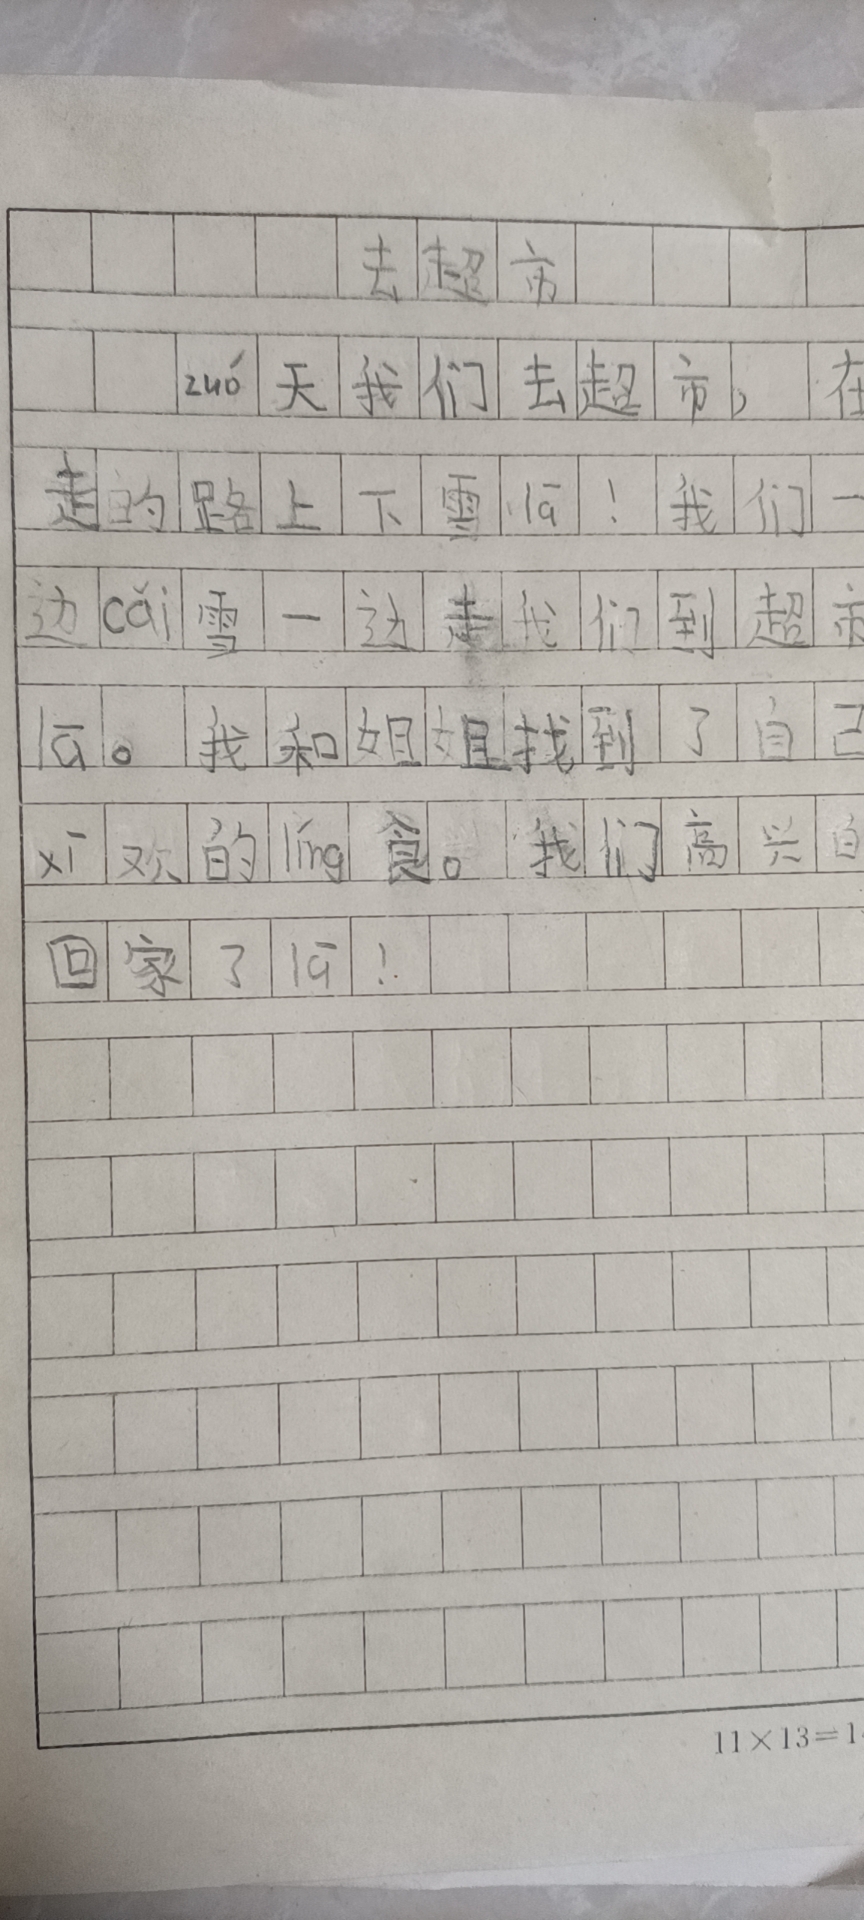 去超市
zuó天我们去超市，在
走的路上下雪lā！我们一
边cǎi雪一边走我们到超市
lā。我和姐姐找到了自己
xǐ欢的líng食。我们高兴的
回家了lā！
11×13=1